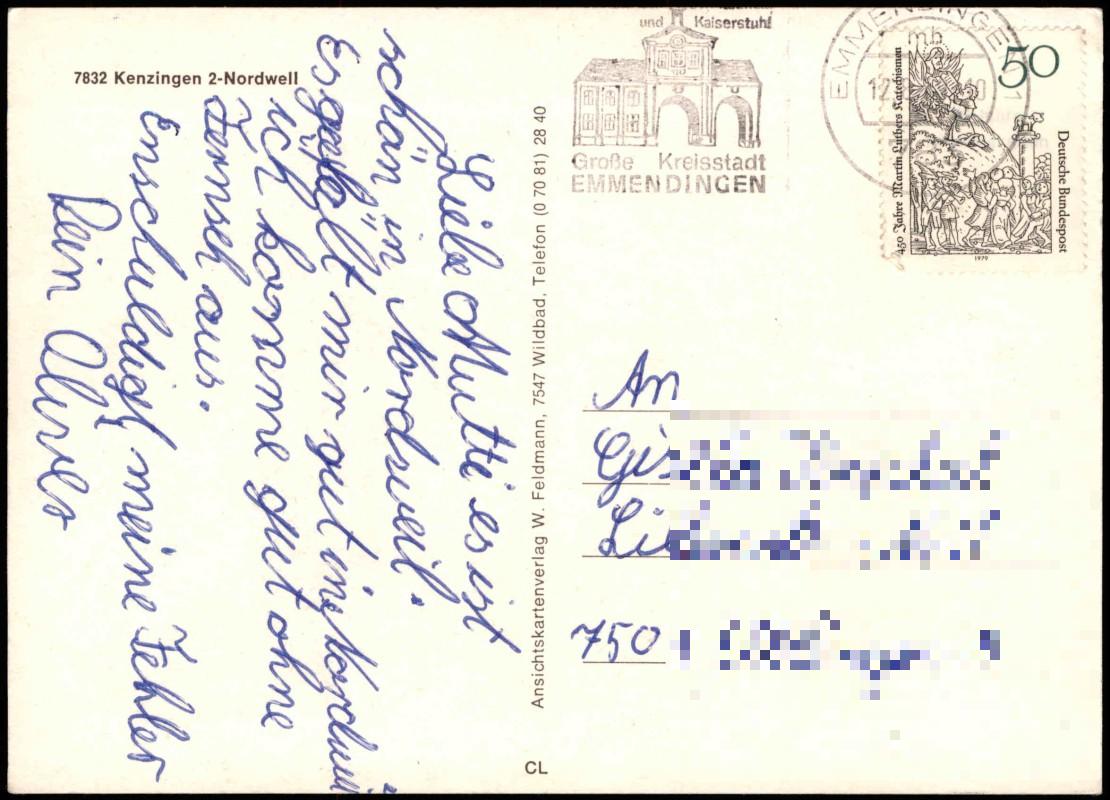 7832 Kenzingen 2-Nordweil
Liebe Mutti es ist
schön in Nordweil.
Es gefällt mir gut in Nordweil
ich komme gut ohne
Fernseh aus.
Enschuldigt meine Fehler
Dein
Ansichtskartenverlag W. Feldmann, 7547 Wildbad, Telefon (0 70 81) 28 40
CL
und Kaiserstuhl
Große Kreisstadt
EMMENDINGEN
EMMENDINGEN 1
mb
50
450 Jahre Martin Luthers Katechismen
Deutsche Bundespost
1979
An
750